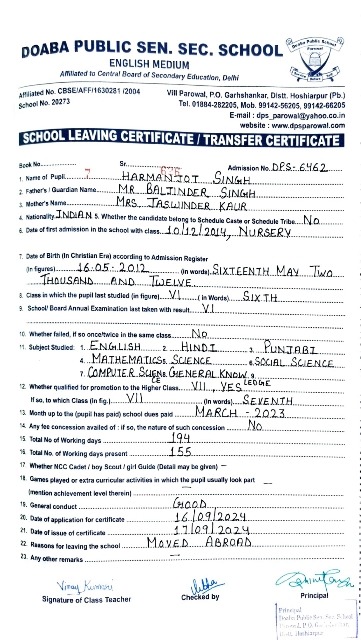 DOABA PUBLIC SEN. SEC. SCHOOL
ENGLISH MEDIUM
Affiliated to Central Board of Secondary Education, Delhi
Affiliated No. CBSE/AFF/1630281 /2004
School No. 20273
Vill Parowal, P.O. Garhshankar, Distt. Hoshiarpur (Pb.)
Tel. 01884-282205, Mob. 99142-56205, 99142-66205
E-mail : dps_parowal@yahoo.co.in
website : www.dpsparowal.com
SCHOOL LEAVING CERTIFICATE / TRANSFER CERTIFICATE
Book No. 7 Sr. 676 Admission No. DPS-6462
1. Name of Pupil HARMANJOT SINGH
2. Father's / Guardian Name MR. BALJINDER SINGH
3. Mother's Name MRS. JASWINDER KAUR
4. Nationality INDIAN 5. Whether the candidate belong to Schedule Caste or Schedule Tribe NO
6. Date of first admission in the school with class 10/12/2014, NURSERY
7. Date of Birth (In Christian Era) according to Admission Register
(In figures) 16-05-2012 (in words) SIXTEENTH MAY TWO
THOUSAND AND TWELVE
8. Class in which the pupil last studied (in figure) VI ( in Words) SIXTH
9. School/ Board Annual Examination last taken with result VI
10. Whether failed, if so once/twice in the same class NO
11. Subject Studied : 1. ENGLISH 2. HINDI 3. PUNJABI
4. MATHEMATICS 5. SCIENCE 6. SOCIAL SCIENCE
7. COMPUTER SCIENCE 8. GENERAL KNOWLEDGE
12. Whether qualified for promotion to the Higher Class VII, YES
If so, to which Class (in fig.) VII (in words) SEVENTH
13. Month up to the (pupil has paid) school dues paid MARCH - 2023
14. Any fee concession availed of : if so, the nature of such concession NO
15. Total No of Working days 194
16. Total No. of Working days present 155
17. Whether NCC Cadet / boy Scout / girl Guide (Detail may be given) —
18. Games played or extra curricular activities in which the pupil usually look part —
(mention achievement level therein)
19. General conduct GOOD
20. Date of application for certificate 16/09/2024
21. Date of issue of certificate 17/09/2024
22. Reasons for leaving the school MOVED ABROAD
23. Any other remarks —
Vinay Kumari
Signature of Class Teacher Checked by Principal
Principal
Doaba Public Sen. Sec. School
Parowal, P.O. Garhshankar
Distt. Hoshiarpur